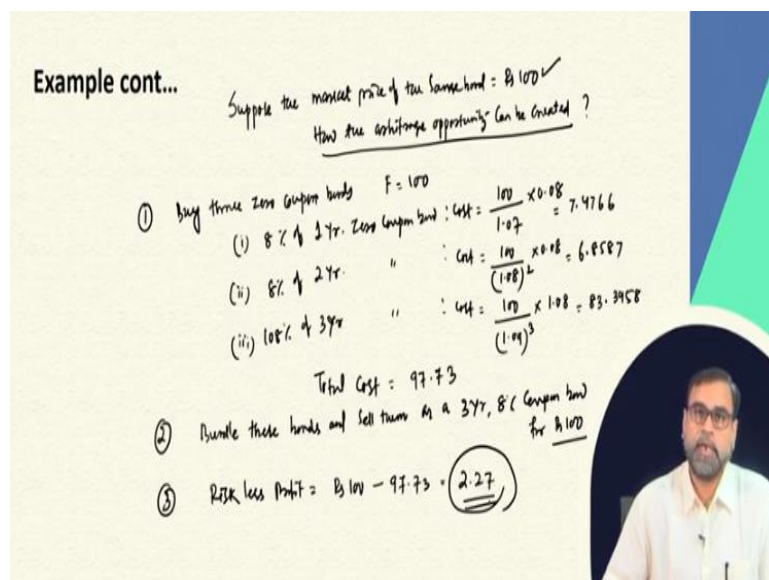 Example cont...
Suppose the market price of the same bond = ₨ 100 ✓
How the arbitrage opportunity can be created ?
① Buy three zero coupon bonds F = 100
(i) 8% of 1 Yr. zero coupon bond : cost = 100 / 1.07 × 0.08 = 7.4766
(ii) 8% of 2 Yr. " : cost = 100 / (1.08)² × 0.08 = 6.8587
(iii) 108% of 3 Yr " : cost = 100 / (1.09)³ × 1.08 = 83.3958
Total Cost = 97.73
② Bundle these bonds and sell them as a 3 Yr, 8% Coupon bond
for ₨ 100
③ Risk less Profit = ₨ 100 – 97.73 = 2.27